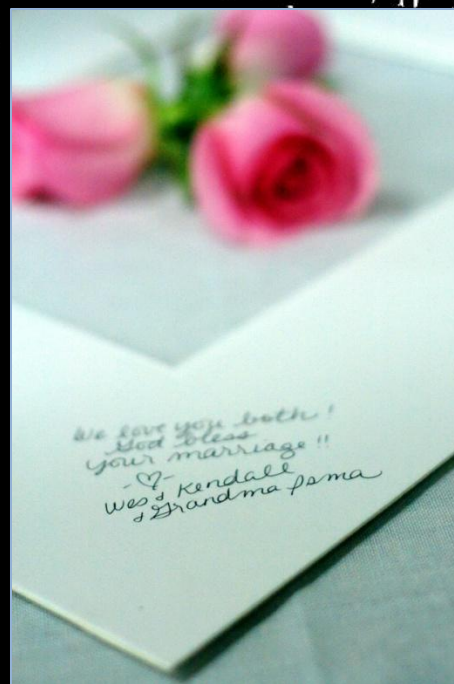 We love you both!
God bless
your marriage!!
-♡-
Wes & Kendall
& Grandma